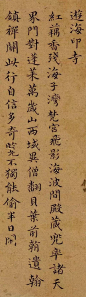 遊海印寺
紅藕香殘海子灣梵宮飛影海波間殿藏兜率諸天
界門對蓬萊萬歲山西域異僧翻貝葉前朝遺翰
鎮禪關此行自信多奇覽不獨能偷半日閒